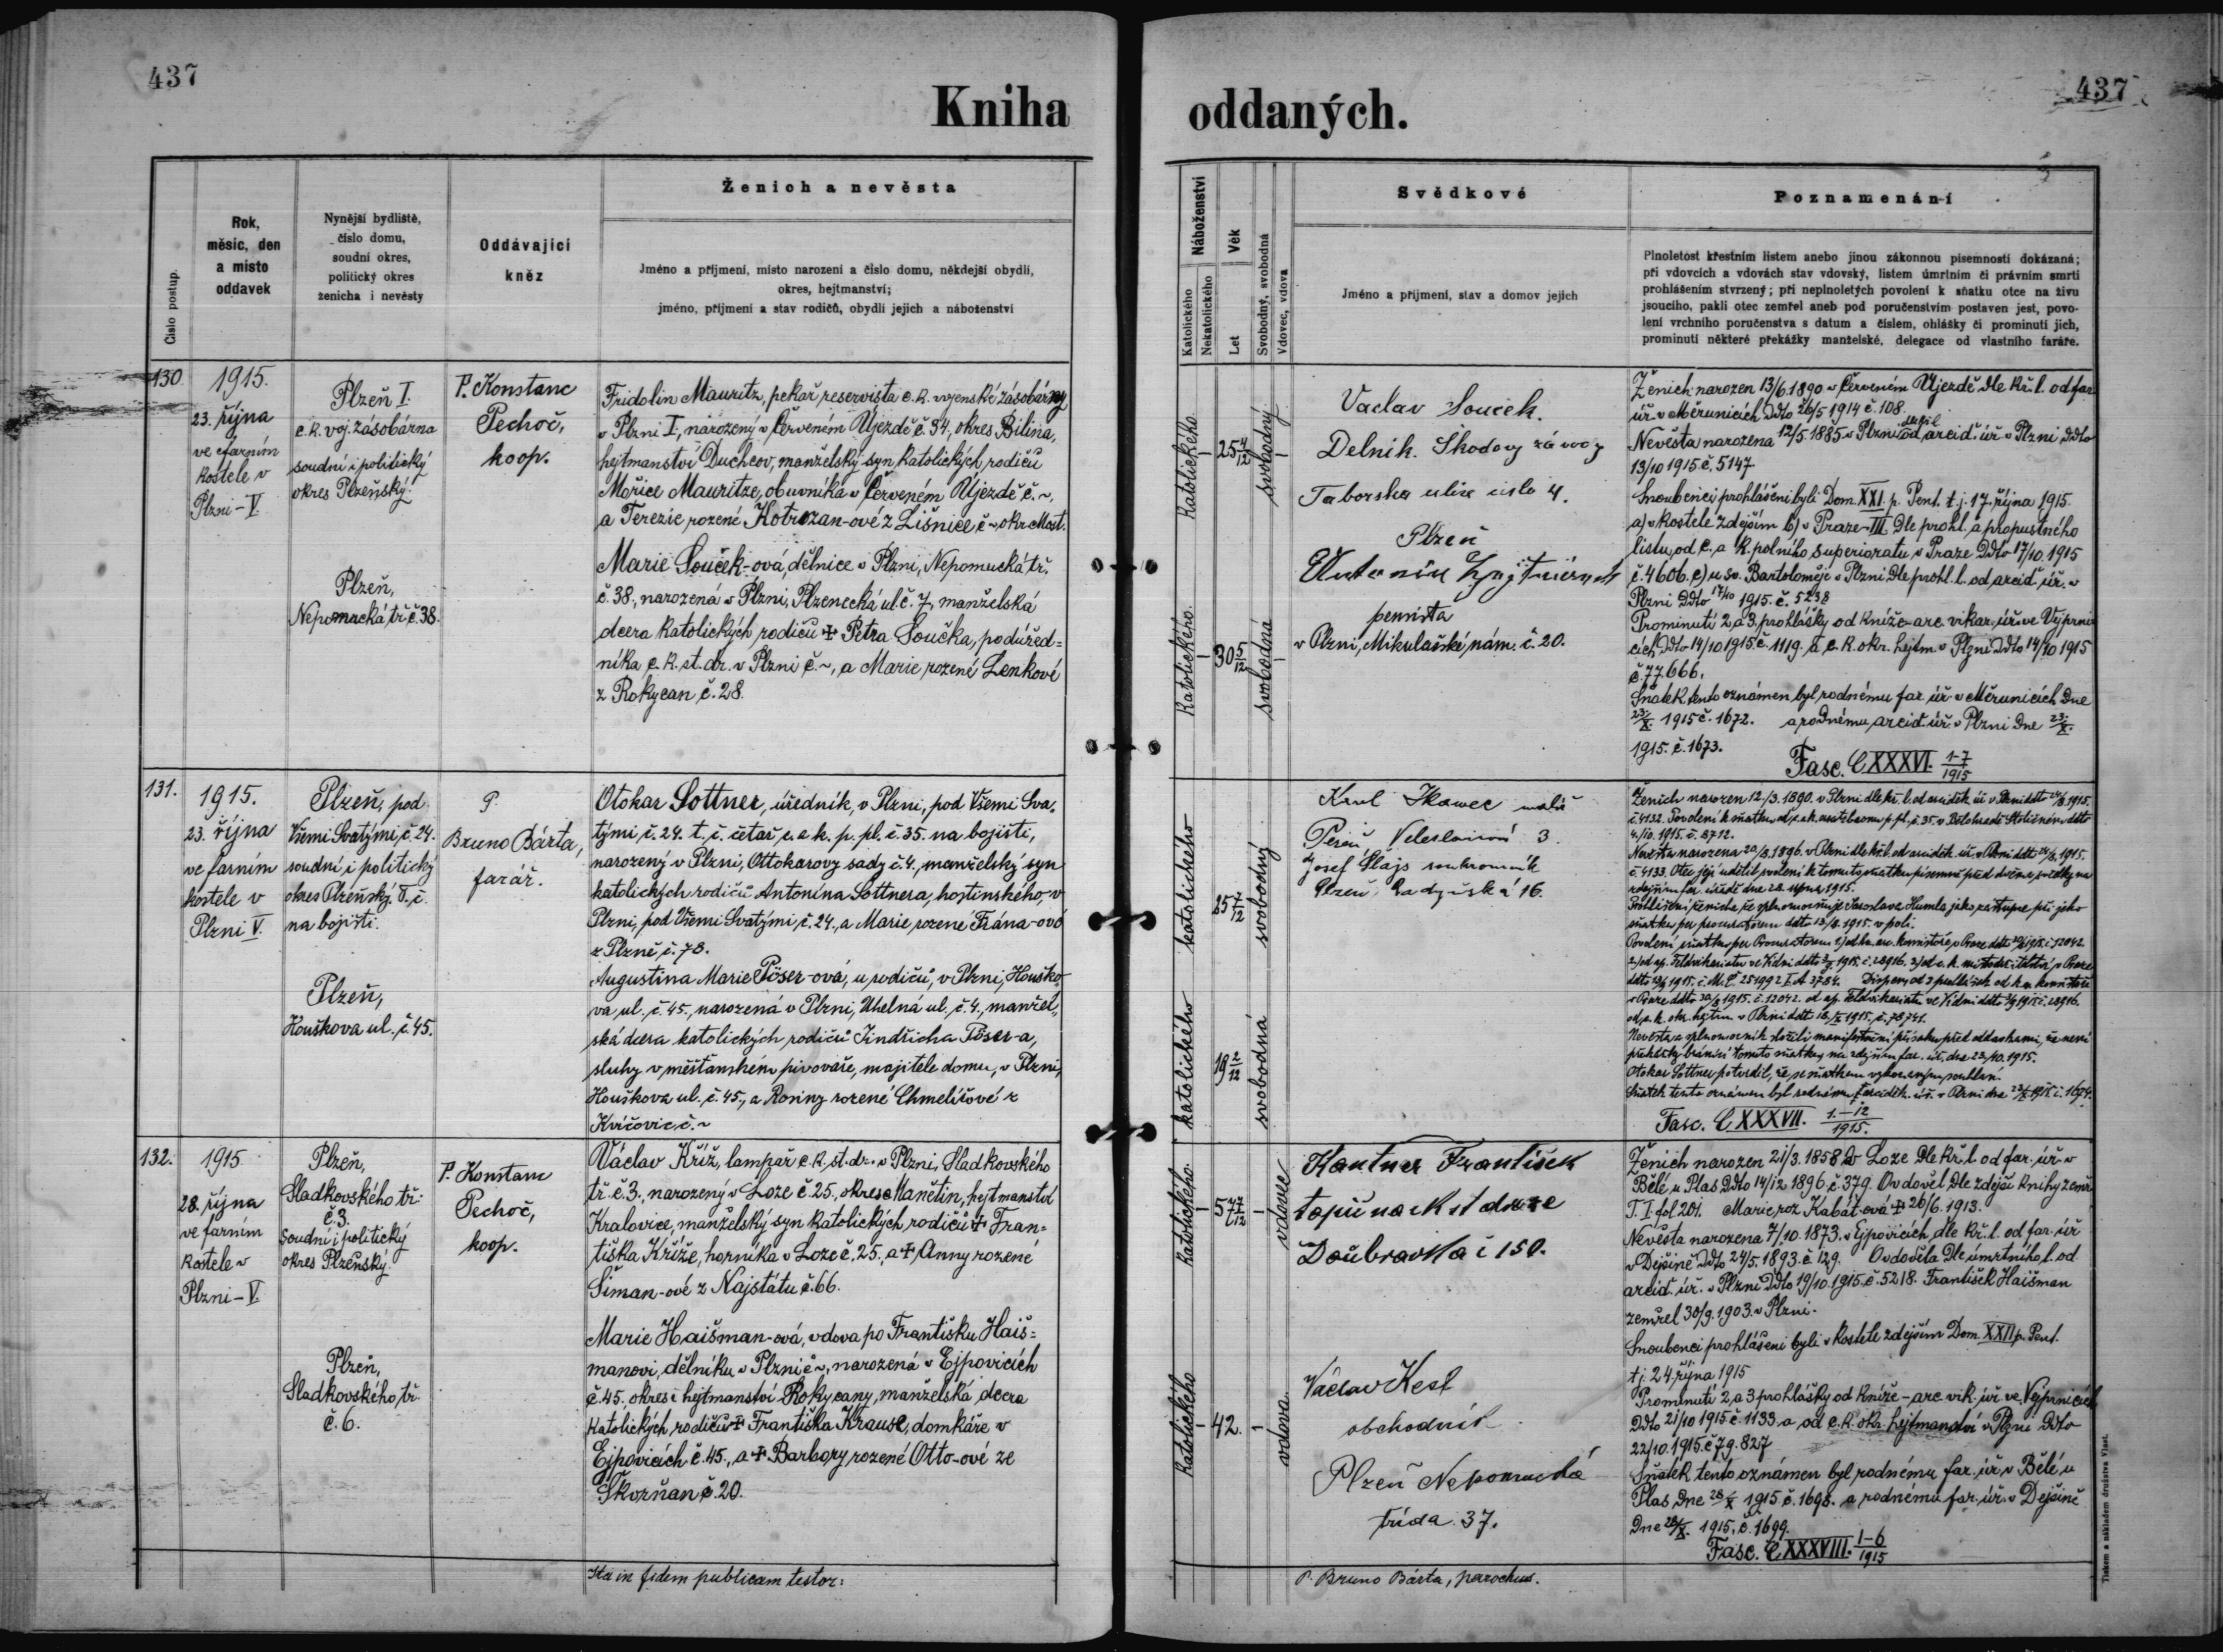 437
437
Kniha oddaných.
Číslo postup.
Rok,
měsíc, den
a místo
oddavek
Nynější bydliště,
číslo domu,
soudní okres,
politický okres
ženicha i nevěsty
Oddávající
kněz
Ženich a nevěsta
Jméno a příjmení, místo narození a číslo domu, někdejší obydlí,
okres, hejtmanství;
jméno, příjmení a stav rodičů, obydlí jejich a náboženství
Náboženství
Katolického
Nekatolického
Věk
Let
Svobodný, svobodná
Vdovec, vdova
Svědkové
Jméno a příjmení, stav a domov jejich
Poznamenání
Plnoletost křestním listem anebo jinou zákonnou písemností dokázaná;
při vdovcích a vdovách stav vdovský, listem úmrtním či právním smrti
prohlášením stvrzený; při neplnoletých povolení k sňatku otce na živu
jsoucího, pakli otec zemřel aneb pod poručenstvím postaven jest, povo-
lení vrchního poručenstva s datum a číslem, ohlášky či prominutí jich,
prominutí některé překážky manželské, delegace od vlastního faráře.
130.
1915.
23. října
ve farním
kostele v
Plzni-V.
Plzeň I.
c.k. voj. zásobárna
soudní i politický
okres Plzeňský.
Plzeň,
Nepomucká tř. č. 38.
P. Konstanc
Pechoč,
koop.
Fridolin Mauritz, pekař reservista c.k. vojenské zásobárny
v Plzni I, narozený v Červeném Újezdě č. 34, okres Bilina,
hejtmanství Duchcov, manželský syn katolických rodičů
Mořice Mauritze, obuvníka v Červeném Újezdě č. ~,
a Terezie rozené Kotrozan-ové z Lišnice č ~, okr. Most.
Marie Souček-ová, dělnice v Plzni, Nepomucká tř.
č. 38, narozená v Plzni, Plzenecká ul. č. 7, manželská
dcera katolických rodičů ✝ Petra Součka, podúřed=
níka c.k. st. dr. v Plzni č. ~, a Marie rozené Lenkové
z Rokycan č. 28.
katolického
25 4/12
svobodný
katolického
30 5/12
svobodná
Vaclav Souček.
Delnik. Škodovy závody
Taborska ulice cislo 4.
Plzeň
Antonín
pensista
v Plzni, Mikulášské nám. č. 20.
Ženich narozen 13/6. 1890 v Červeném Újezdě dle kř. l. od far.
úř. v Měrunicích ddto 26/5 1914 č. 108.
Nevěsta narozena 12/5. 1885 v Plzni od arciď. úř. v Plzni ddto
13/10 1915 č. 5147
Snoubenci prohlášeni byli Dom. XXI. p. Pent. t.j. 17. října 1915
a) v kostele zdejším b) v Praze-III. Dle prohl. a propustného
listu od c. a k. polního superioratu v Praze ddto 17/10 1915
č. 4606. c) u sv. Bartoloměje v Plzni dle prohl. l. od arciď. úř. v
Plzni ddto 17/10 1915. č. 5238
Prominutí 2. a 3. prohlášky od kníže-arc. vikar. úř. ve Vejprni-
cích ddto 14/10 1915 č. 1119. a c.k. okr. hejtm. v Plzni ddto 14/10 1915
č. 77.666.
Sňatek tento oznámen byl rodnému far. úř. v Měrunicích dne
23/X. 1915 č. 1672. a rodnému arciď. úř. v Plzni dne 23/X.
1915. č. 1673.
Fasc. CXXXVI. 1-7/1915
131.
1915.
23. října
ve farním
kostele v
Plzni V.
Plzeň, pod
Všemi Svatými, č. 24.
soudní i politický
okres Plzeňský. T. č.
na bojišti.
Plzeň,
Houškova ul. č. 45.
P.
Bruno Bárta,
farář.
Otokar Lottner, úředník, v Plzni, pod Všemi Sva-
tými, č. 24. t. č. četař c. a k. p. pl. č. 35. na bojišti,
narozený v Plzni, Ottokarovy sady č. 4., manželský syn
katolických rodičů Antonína Lottnera, hostinského, v
Plzni, pod Všemi Svatými, č. 24., a Marie rozené Frána-ové
z Plzně, č. 78.
Augustina Marie Pöser-ová, u rodičů, v Plzni, Houško-
va ul. č. 45., narozená v Plzni, Uhelná ul. č. 4., manžel-
ská dcera katolických rodičů Jindřicha Pöser-a,
sluhy v měšťanském pivováře, majitele domu, v Plzni,
Houškova ul. č. 45., a Rosiny rozené Chmelířové z
Kvíčovic, č. ~
katolického
25 7/12
svobodný
katolického
19 2/12
svobodná
Karel malíř
Plzeň, Veleslavínova 3.
Josef Šlajs soukromník
Plzeň, 16.
Ženich narozen 12./3. 1890. v Plzni dle kř. l. od arciděk. úř. v Plzni ddto 1915.
č. 4132.
4./10. 1915. č. 8712.
Nevěsta narozena 20/8. 1896. v Plzni dle kř. l. od arciděk. úř. v Plzni ddto 1915.
č. 4133. Otec její udělil svolení k tomuto sňatku písemně před dvěma svědky na
zdejším far. úřadě dne 28. srpna 1915.
Prohlášení ženicha, že zplnomocňuje Jaroslava Humla jako zástupce při jeho
sňatku per procuratorem ddto 13/8. 1915. v poli.
Nevěsta a zplnomocník složili manifestační přísahu před oddavkami, že není
překážky bránící tomuto sňatku na zdejším far. úř. dne 23/10. 1915.
Otokar Lottner potvrdil, že se sňatkem vykonaným souhlasí.
Sňatek tento oznámen byl rodnému arciděk. úř. v Plzni dne 23/X 1915. č. 1674.
Fasc. CXXXVII. 1.-12/1915.
132.
1915
28. října
ve farním
kostele v
Plzni-V.
Plzeň,
Sladkovského tř.
č. 3.
soudní i politický
okres Plzeňský.
Plzeň,
Sladkovského tř.
č. 6.
P. Konstanc
Pechoč,
koop.
Václav Kříž, lampař c.k. st. dr. v Plzni, Sladkovského
tř. č. 3., narozený v Loze č. 25., okrese Manětín, hejtmanství
Kralovice, manželský syn katolických rodičů ✝ Fran-
tiška Kříže, horníka v Loze č. 25., a ✝ Anny rozené
Šiman-ové z Najstátu č. 66.
Marie Haišman-ová, vdova po Františku Haiš=
manovi, dělníku v Plzni č ~, narozená v Ejpovicích
č. 45. okres i hejtmanství Rokycany, manželská dcera
katolických rodičů ✝ Františka Krause, domkáře v
Ejpovicích č. 45., a ✝ Barbory rozené Otto-ové ze
Škorňan č. 20.
katolického
57 7/12
vdovec
katolického
42.
vdova
Kantner František
topič na ck st draze
Doubravka č 150.
Václav Kesl
obchodník
Plzeň Nepomucká
třída 37.
Ženich narozen 21/3. 1858 v Loze dle kř. l. od far. úř. v
Bělé u Plas ddto 14/12 1896. č. 379. Ovdověl dle zdejší knihy zemř.
T. I fol. 201. Marie roz. Kabát-ová ✝ 26/6. 1913.
Nevěsta narozena 7/10. 1873. v Ejpovicích, dle kř. l. od far. úř.
v Dejšině ddto 24/5. 1893. č. 129. Ovdověla dle úmrtního l. od
arciď. úř. v Plzni ddto 19/10. 1915. č. 5218. František Haišman
zemřel 30/9. 1903. v Plzni.
Snoubenci prohlášeni byli v kostele zdejším Dom. XXII p. Pent.
t.j. 24. října 1915
Prominutí 2. a 3 prohlášky od kníže-arc. vik. úř. ve Vejprnicích
ddto 21/10 1915 č. 1133 a od c.k. okr. hejtmanství v Plzni ddto
22/10. 1915. č. 79.827
Sňatek tento oznámen byl rodnému far. úř. v Bělé u
Plas dne 28/X 1915 č. 1698. a rodnému far. úř. v Dejšině
dne 28/X. 1915. č. 1699.
Fasc. CXXXVIII. 1-6/1915
Ita in fidem publicam testor:
P. Bruno Bárta, parochus.
Tiskem a nákladem družstva Vlast.